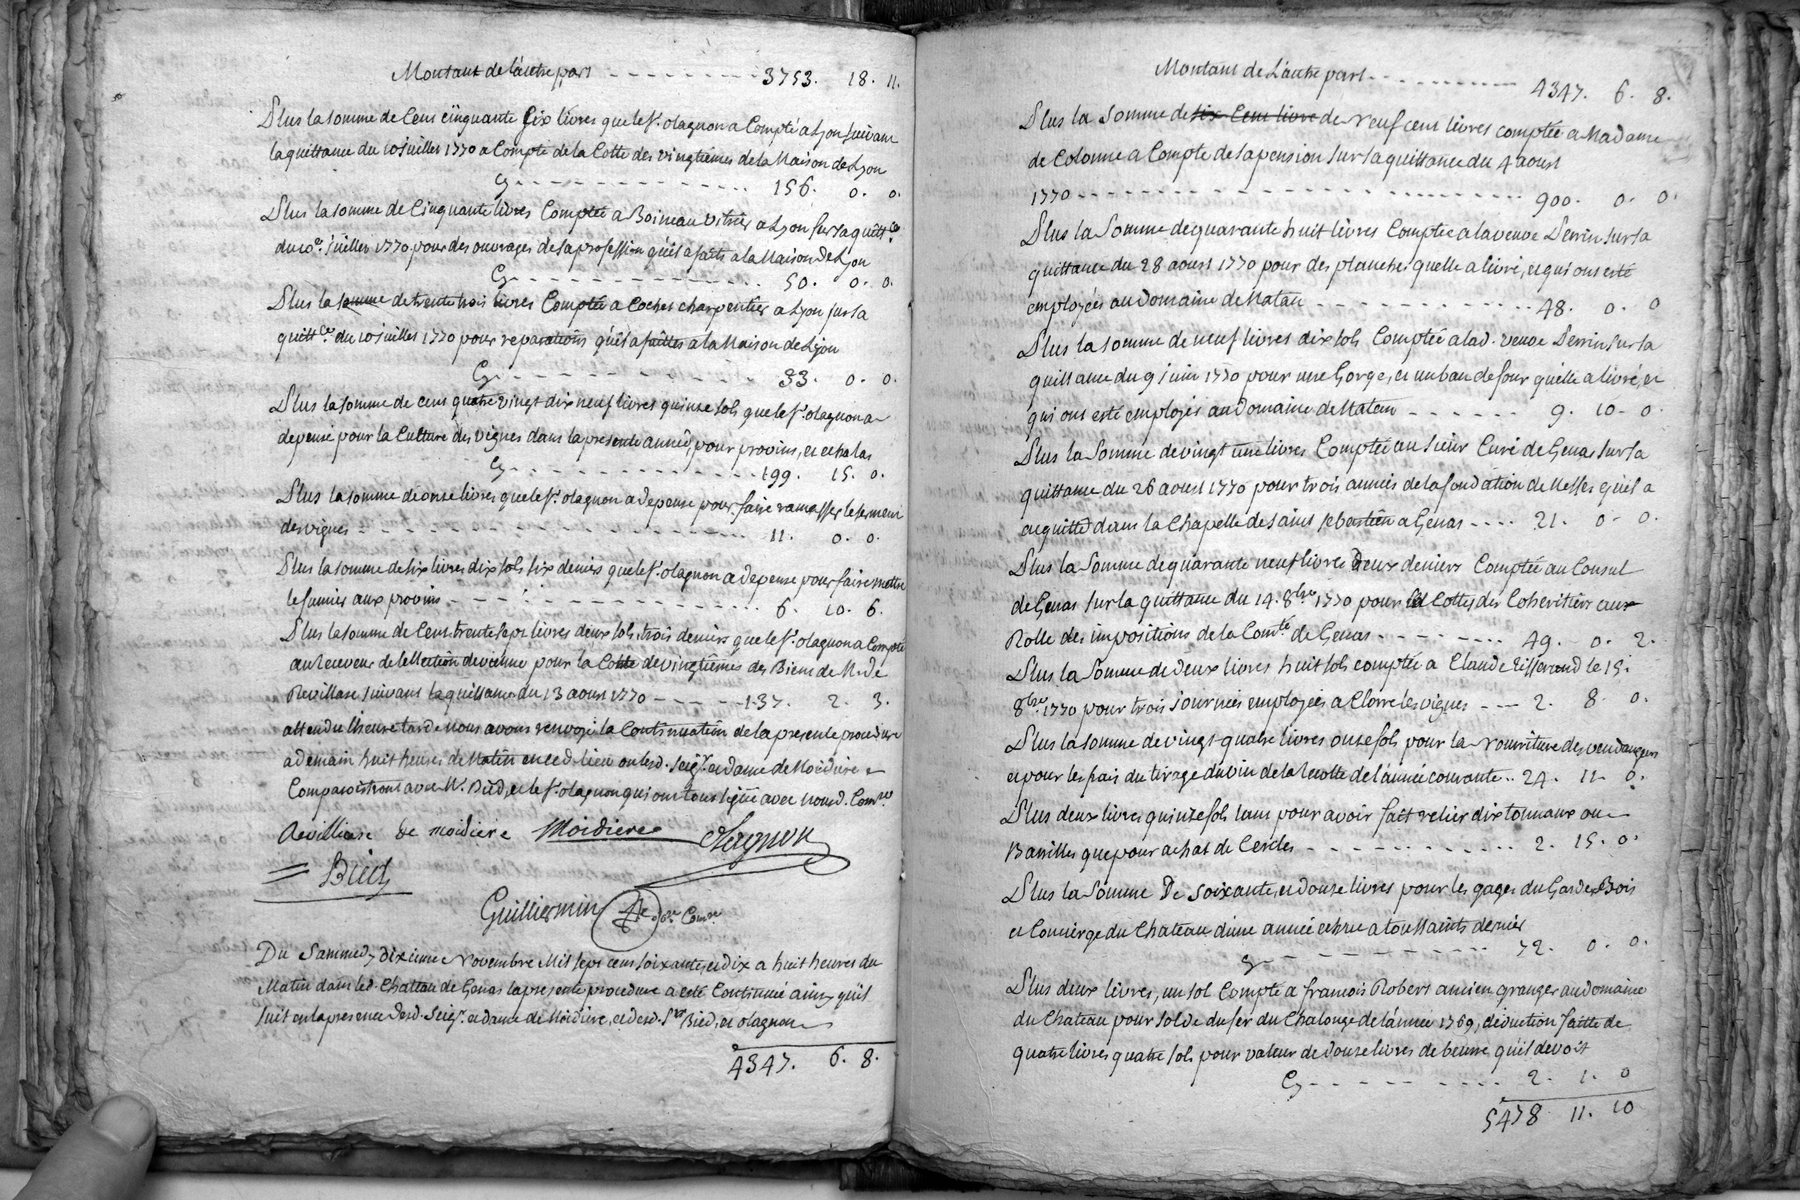 Montant de l'autre part - - - - - - - - - 3753. 18. 11.
Plus la somme de Cent cinquante six livres que le Sr. olagnon a Compté a Lyon suivant
la quittance du 10 juillet 1770 a Compte de la Cotte des vingtiemes de la Maison de Lyon
Cy - - - - - - - - - - - 156. 0. 0.
Plus la somme de Cinquante livres Comptée a Boineau vitrier a Lyon sur sa quittce
du 10e. juillet 1770 pour des ouvrages de sa profession qu'il a faits a la Maison de Lyon
Cy - - - - - - - - - - - 50. 0. 0.
Plus la somme de trente trois livres Comptée a Cochet charpentier a Lyon sur sa
quittce. du 10 juillet 1770 pour reparations qu'il a faittes a la Maison de Lyon
Cy - - - - - - - - - - - 33. 0. 0.
Plus la somme de cent quatre vingt dix neuf livres quinze sols que le Sr. olagnon a
depensé pour la Culture des vignes dans la presente année, pour provins, et echalas
Cy - - - - - - - - - - - 199. 15. 0.
Plus la somme de onze livres que le Sr. olagnon a depensé pour faire ramasser le serment
des vignes - - - - - - - - - - - 11. 0. 0.
Plus la somme de six livres dix sols six deniers que le Sr. olagnon a depensé pour faire mettre
le fumier aux provins - - - - - - - - - - - 6. 10. 6.
Plus la somme de Cent trente sept livres deux sols, trois deniers que le Sr. olagnon a Compté
au receveur de l'ellection de vienne pour la Cotte de vingtiemes des Biens de M. de
Revilliase suivant la quittance du 13 aoust 1770 - - - - - 137. 2. 3.
attendu l'heure tarde nous avons renvoyé la Continuation de la presente procedure
a demain huit heures de Matin en ced. lieu ou lesd. seigr. et dame de Moidiere
Comparoistront avec Me. Bied, et le Sr. olagnon qui ont tous signé avec nousd. Comre.
Revilliase de moidiere Moidiere Olagnon
Bied
Guilliermin
Du Sammedy dixieme Novembre Mil sept cent soixante, et dix a huit heures du
Matin dans led. Chateau de Genas la presente procedure a esté Continuée ainsy qu'il
suit en la presence desd. Seigr. et dame de Moidiere, et desd. Srs Bied, et olagnon
4347. 6. 8.
Montant de L'autre part - - - - - - - - - 4347. 6. 8.
Plus la Somme de six Cent livre de Neuf cent livres comptée a Madame
de Colonne a Compte de sa pension sur sa quittance du 4 aoust
1770 - - - - - - - - - - - 900. 0. 0.
Plus la Somme de quarante huit livres Comptée a la veuve Perrin sur sa
quittance du 28 aoust 1770 pour des planches quelle a livré, et qui ont esté
employées au Domaine de Matan - - - - - - - - - 48. 0. 0
Plus la somme de neuf livres dix sols Comptée a lad. veuve Perrin sur sa
quittance du 9 juin 1770 pour une Gorge, et un ban de four qu'elle a livré, et
qui ont esté employés au Domaine de Matan - - - - - - 9. 10. 0.
Plus la Somme de vingt une livres Comptée au sieur Curé de Genas sur sa
quittance du 26 aoust 1770 pour trois années de la fondation de Messes qu'il a
acquitté dans la Chapelle de saint sebastien a Genas - - - - 21. 0. 0.
Plus la Somme de quarante neuf livres Deux deniers Comptée au Consul
de Genas sur la quittance du 14. 8bre 1770 pour les Cottes des Coheritiers aux
Rolle des impositions de la Comté de Genas - - - - - - - 49. 0. 2.
Plus la Somme de deux livres huit sols comptée a Claude le 15.
8bre. 1770 pour trois journées employées a Clorre les vignes - - - 2. 8. 0.
Plus la somme de vingt quatre livres onze sols pour la Nourriture des vendangeurs
et pour les frais du tirage du vin de la recolte de l'année courante. . 24. 11. 0.
Plus deux livres quinze sols tant pour avoir fait relier dix tonnaux ou
Barrilles que pour achat de Cercles - - - - - - - - - - - 2. 15. 0.
Plus la Somme De soixante, et douze livres pour les gages du Garde Bois
et Concierge du Chateau d'une année echue a toussaints dernier
Cy - - - - - - - - - - - 72. 0. 0.
Plus deux livres, un sol Compté a francois Robert ancien granger au domaine
du Chateau pour solde du fer du Chalonge de l'année 1769, deduction faitte de
quatre livres quatre sols pour valeur de douze livres de beurre qu'il devoit
Cy - - - - - - - - - - - 2. 1. 0
5478 11. 10